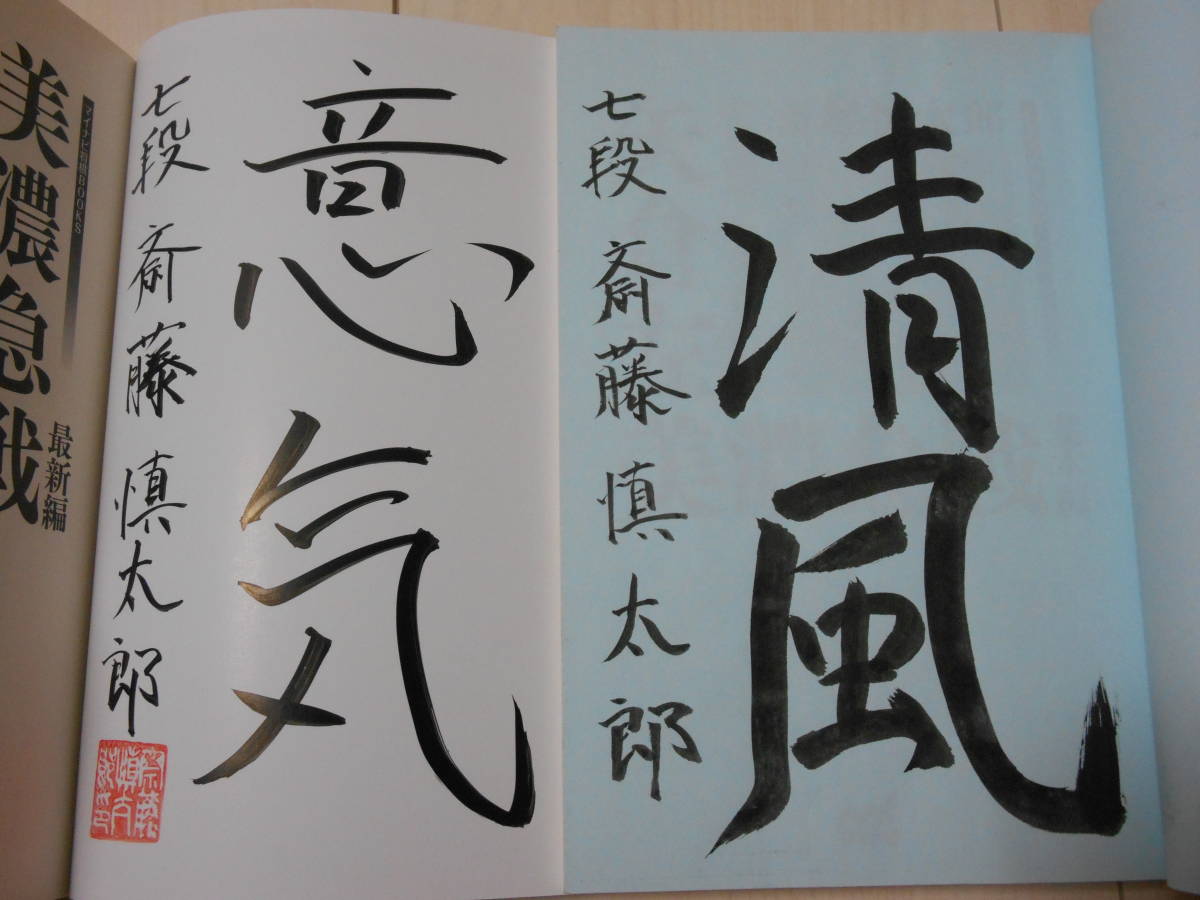 清風
七段 斎藤 慎太郎
意気
七段 斎藤 慎太郎
マイナビ将棋BOOKS
美濃急戦
最新編